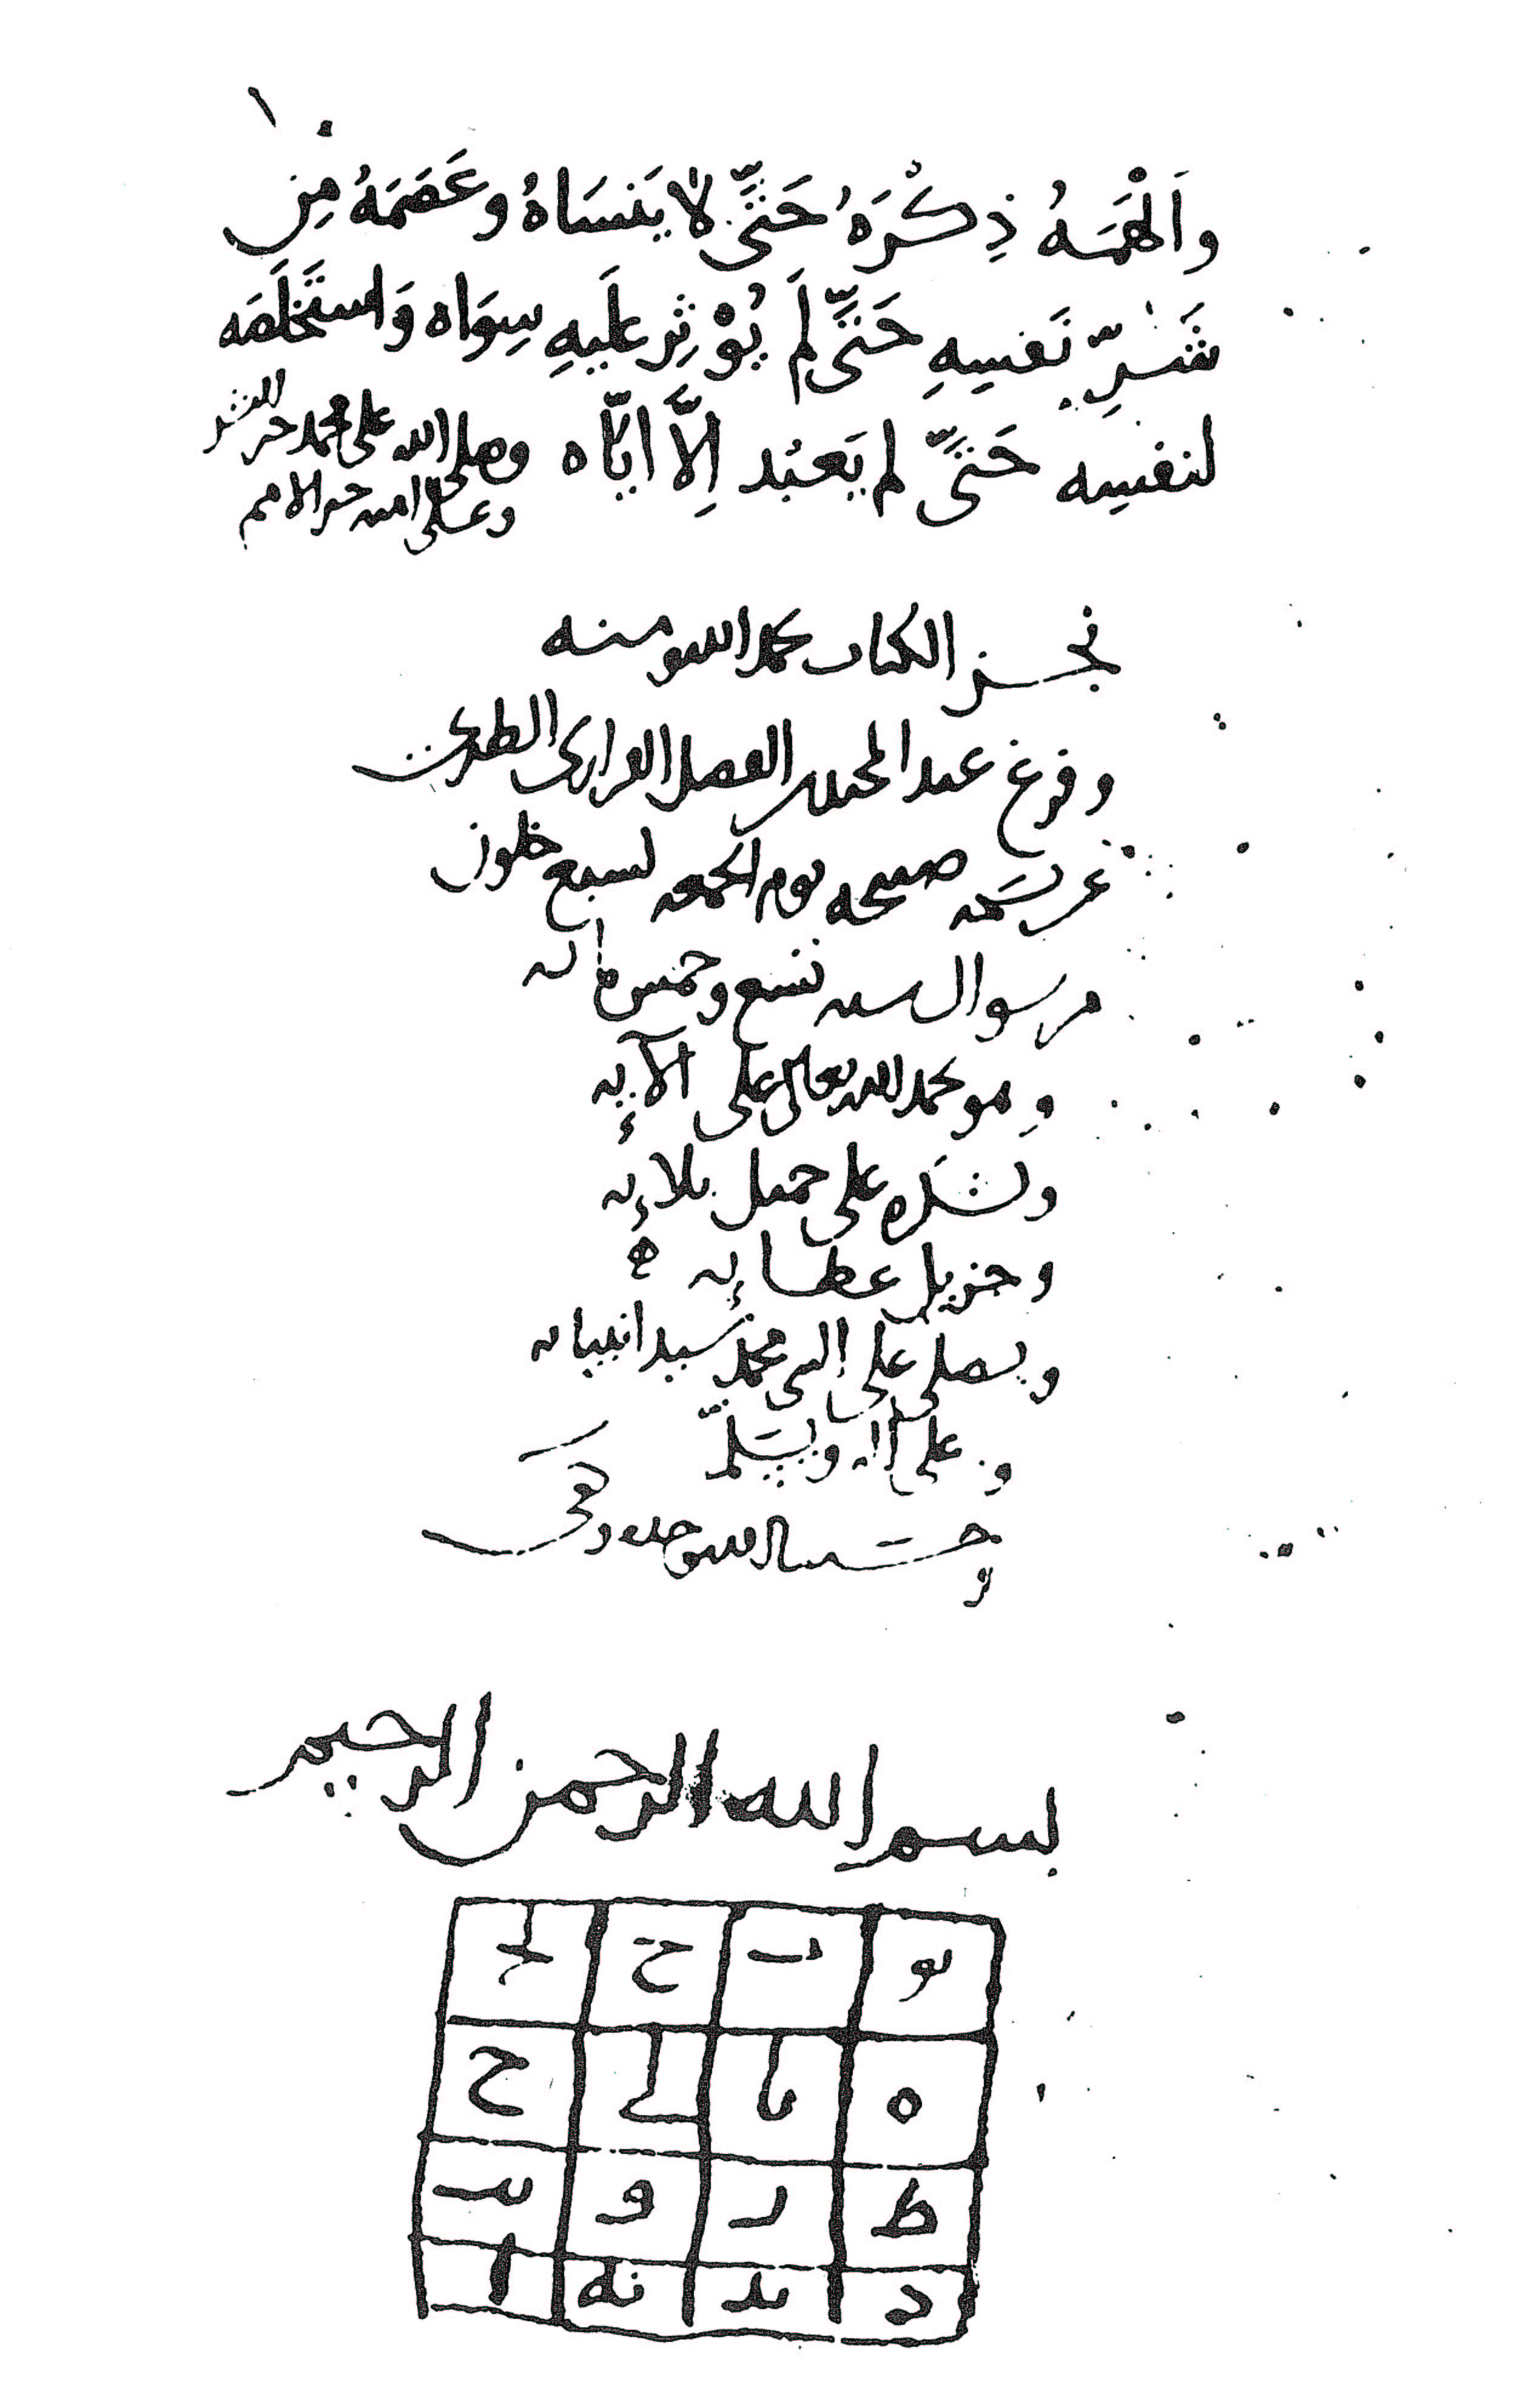 وَأَلْهَمَهُ ذِكْرَهُ حَتَّى لا يَنسَاهُ وعَصَمَهُ مِن
شَرِّ نَفسِهِ حَتَّى لَم يُؤْثِر عليهِ سِوَاه وَاستَخلَصَه
لنفسِه حَتَّى لم يَعبُد إِلَّا ايّاه وصلى الله على محمد خير البشر
وعلى امته خير الامم
نجز الكتاب بحمد الله ومنه
وفرغ عبد الجليل الفضل الطبري
من نسخه صبيحه يوم الجمعه لسبع خلون
من شوال سنه تسع وخمس مائه
وهو يحمد الله تعالى على آلائه
ويشكره على جميل بلائه
وجزيل عطائه
ويصلي على النبي محمد سيد انبيائه
وعلى آله ويسلّم
وحسبنا الله وحده وكفى
بسم الله الرحمن الرحيم
يو ب ح
ه يا ح
ط ر و
د يد ا